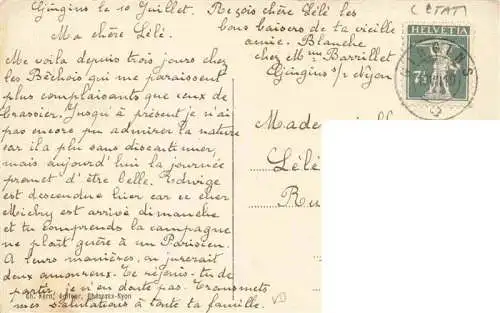 Gingins le 10 Juillet.
Ma chère Lélé.
Me voilà depuis trois jours chez
les Béchois qui me paraissent
plus complaisants que ceux de
Crassier. Jusqu'à présent je n'ai
pas encore pu admirer la nature
car il a plu sans discontinuer,
mais aujourd'hui la journée
promet d'être belle. Edwige
est descendue hier car ce cher
Michry est arrivé dimanche
et tu comprends la campagne
ne plaît guère à un Parisien.
A leurs manières, on jurerait
deux amoureux. Te réjouis-tu de
partir, je n'en doute pas. Transmets
mes salutations à toute ta famille.
Ch. Kern, éditeur, Chéserex-Nyon
Reçois chère Lélé les
bons baisers de ta vieille
amie. Blanche
chez Mme Barrillet
Gingins s/ Nyon
(ETAT)
HELVETIA
7½
GINGINS
Mademoi
Lélé
Ru